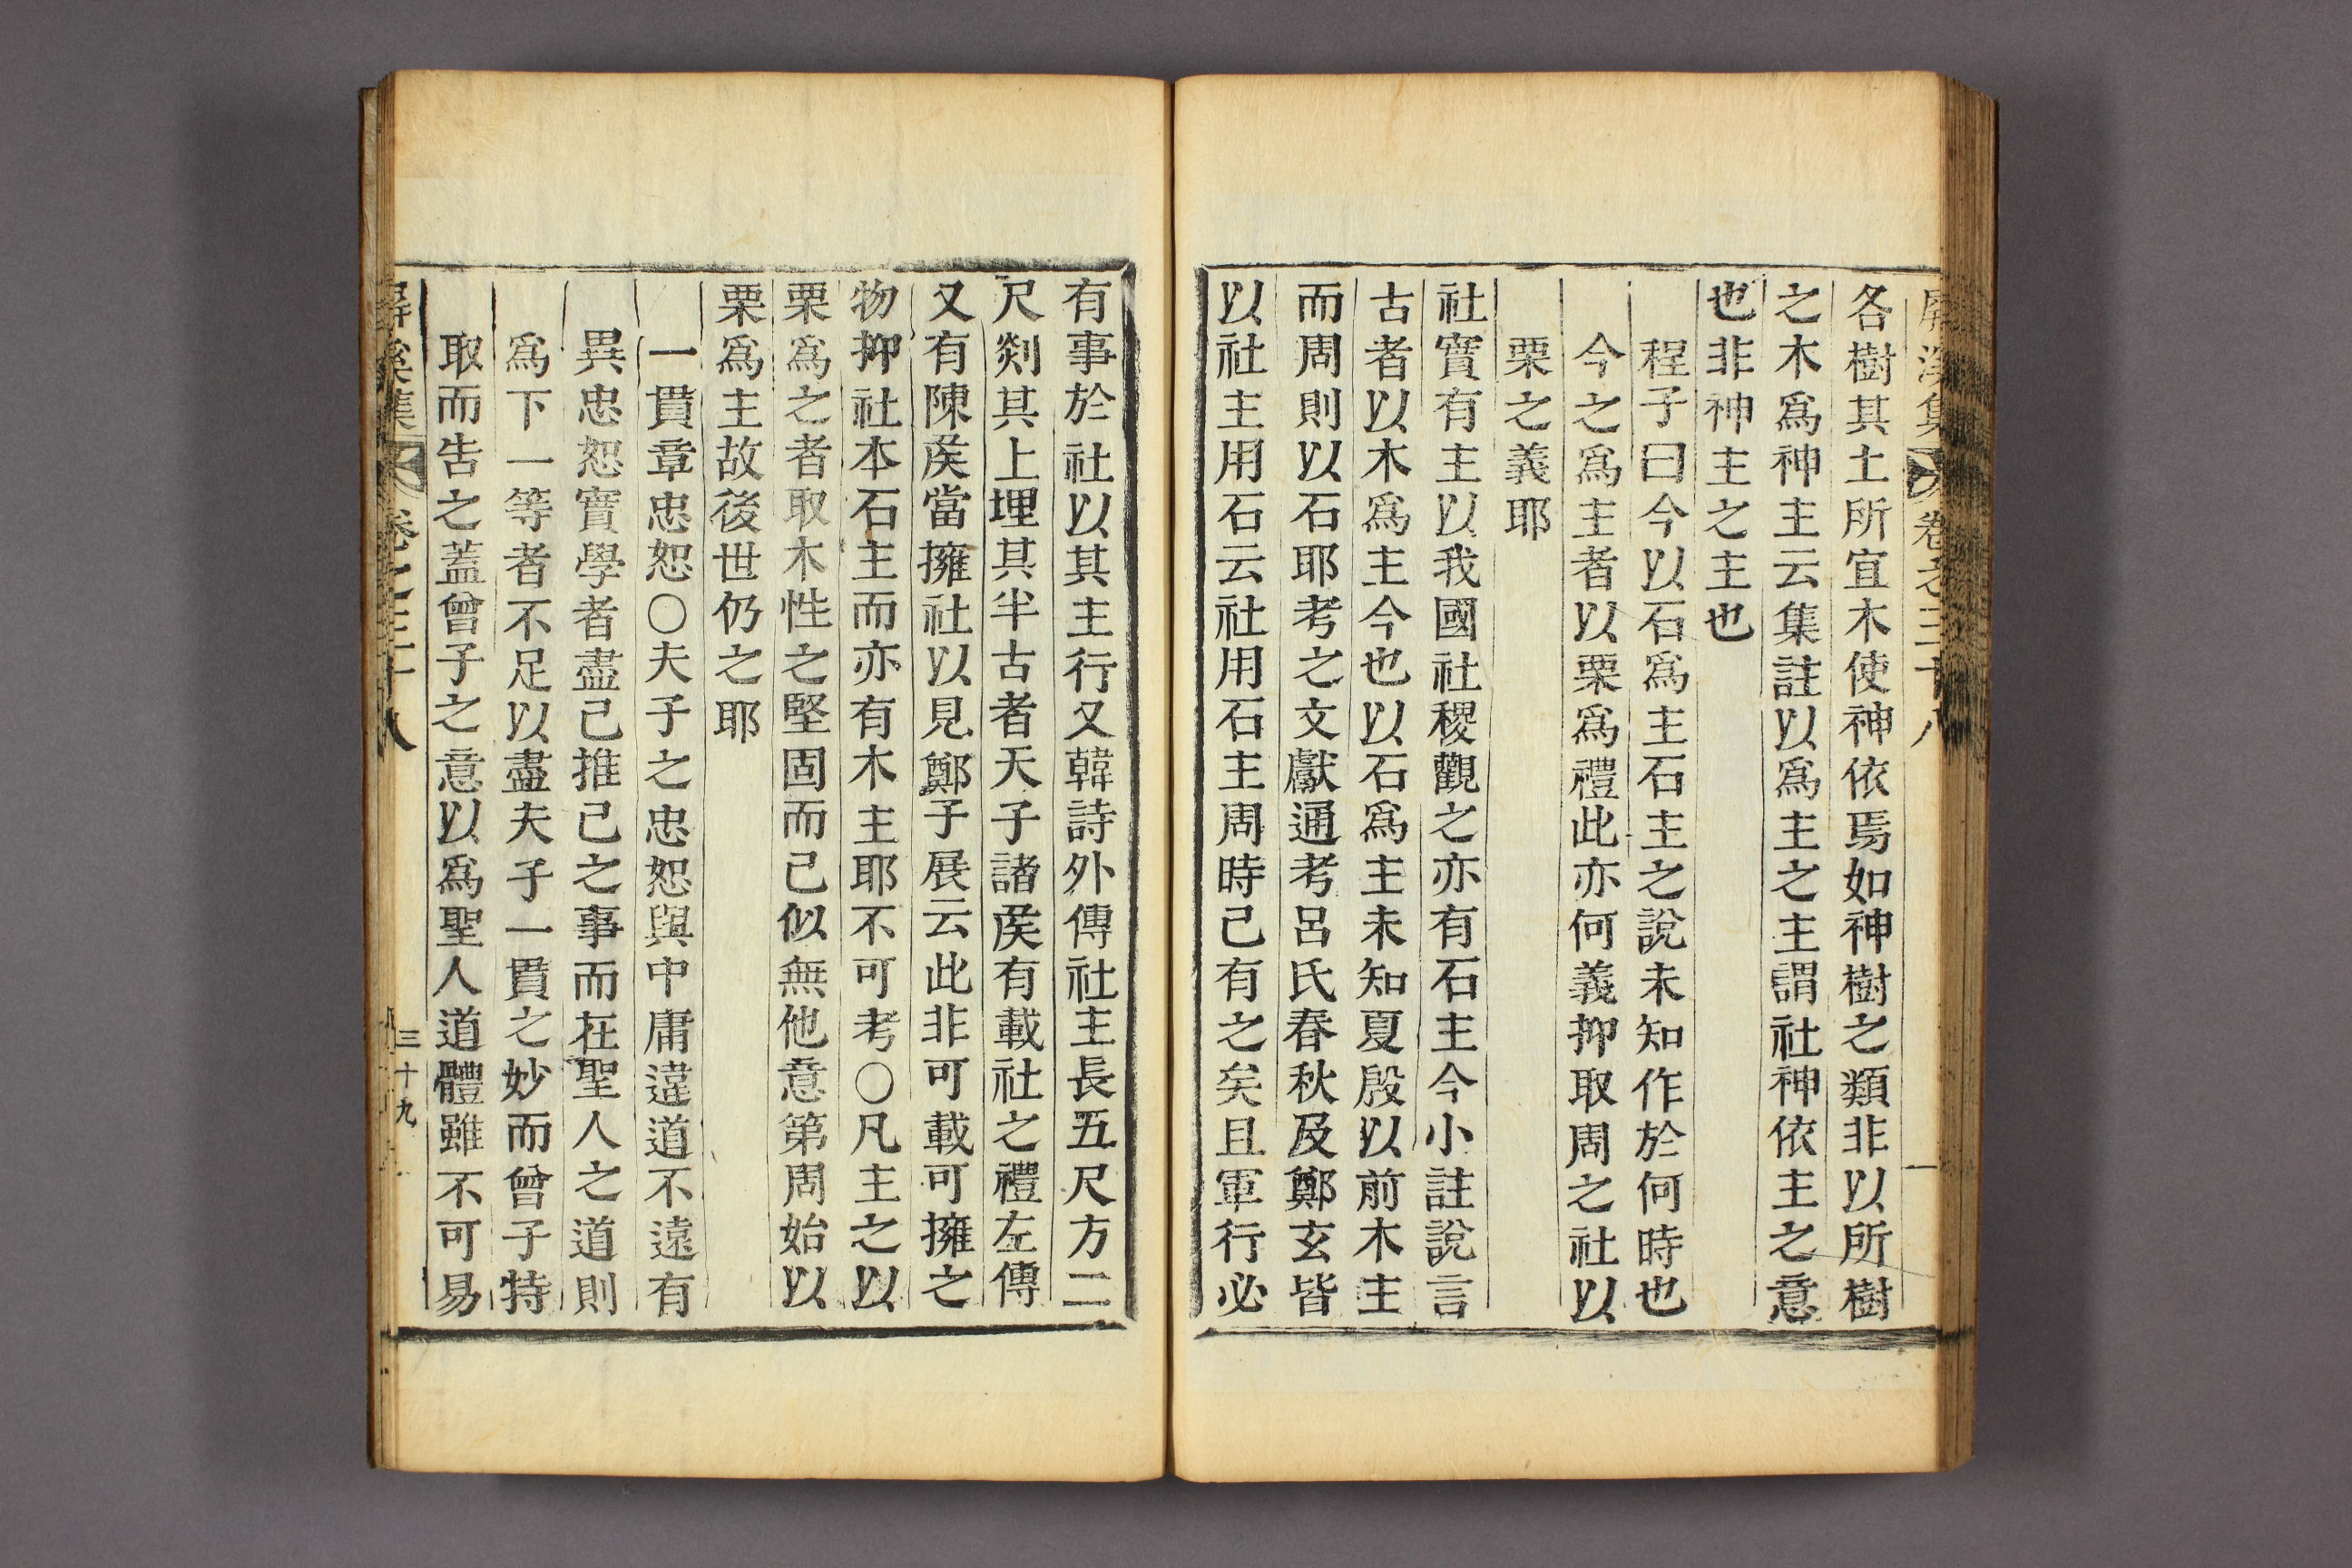 屏溪集 卷之三十八
各樹其土所宜木使神依焉如神樹之類非以所樹
之木爲神主云集註以爲主之主謂社神依主之意
也非神主之主也
程子曰今以石爲主石主之說未知作於何時也
今之爲主者以栗爲禮此亦何義抑取周之社以
栗之義耶
社實有主以我國社稷觀之亦有石主今小註說言
古者以木爲主今也以石爲主未知夏殷以前木主
而周則以石耶考之文獻通考呂氏春秋及鄭玄皆
以社主用石云社用石主周時已有之矣且軍行必
有事於社以其主行又韓詩外傳社主長五尺方二
尺剡其上埋其半古者天子諸矦有載社之禮左傳
又有陳矦當擁社以見鄭子展云此非可載可擁之
物抑社本石主而亦有木主耶不可考○凡主之以
栗爲之者取木性之堅固而已似無他意第周始以
栗爲主故後世仍之耶
一貫章忠恕○夫子之忠恕與中庸違道不遠有
異忠恕實學者盡己推己之事而在聖人之道則
爲下一等者不足以盡夫子一貫之妙而曾子特
取而告之蓋曾子之意以爲聖人道體雖不可易
屏溪集 卷之三十八 三十九